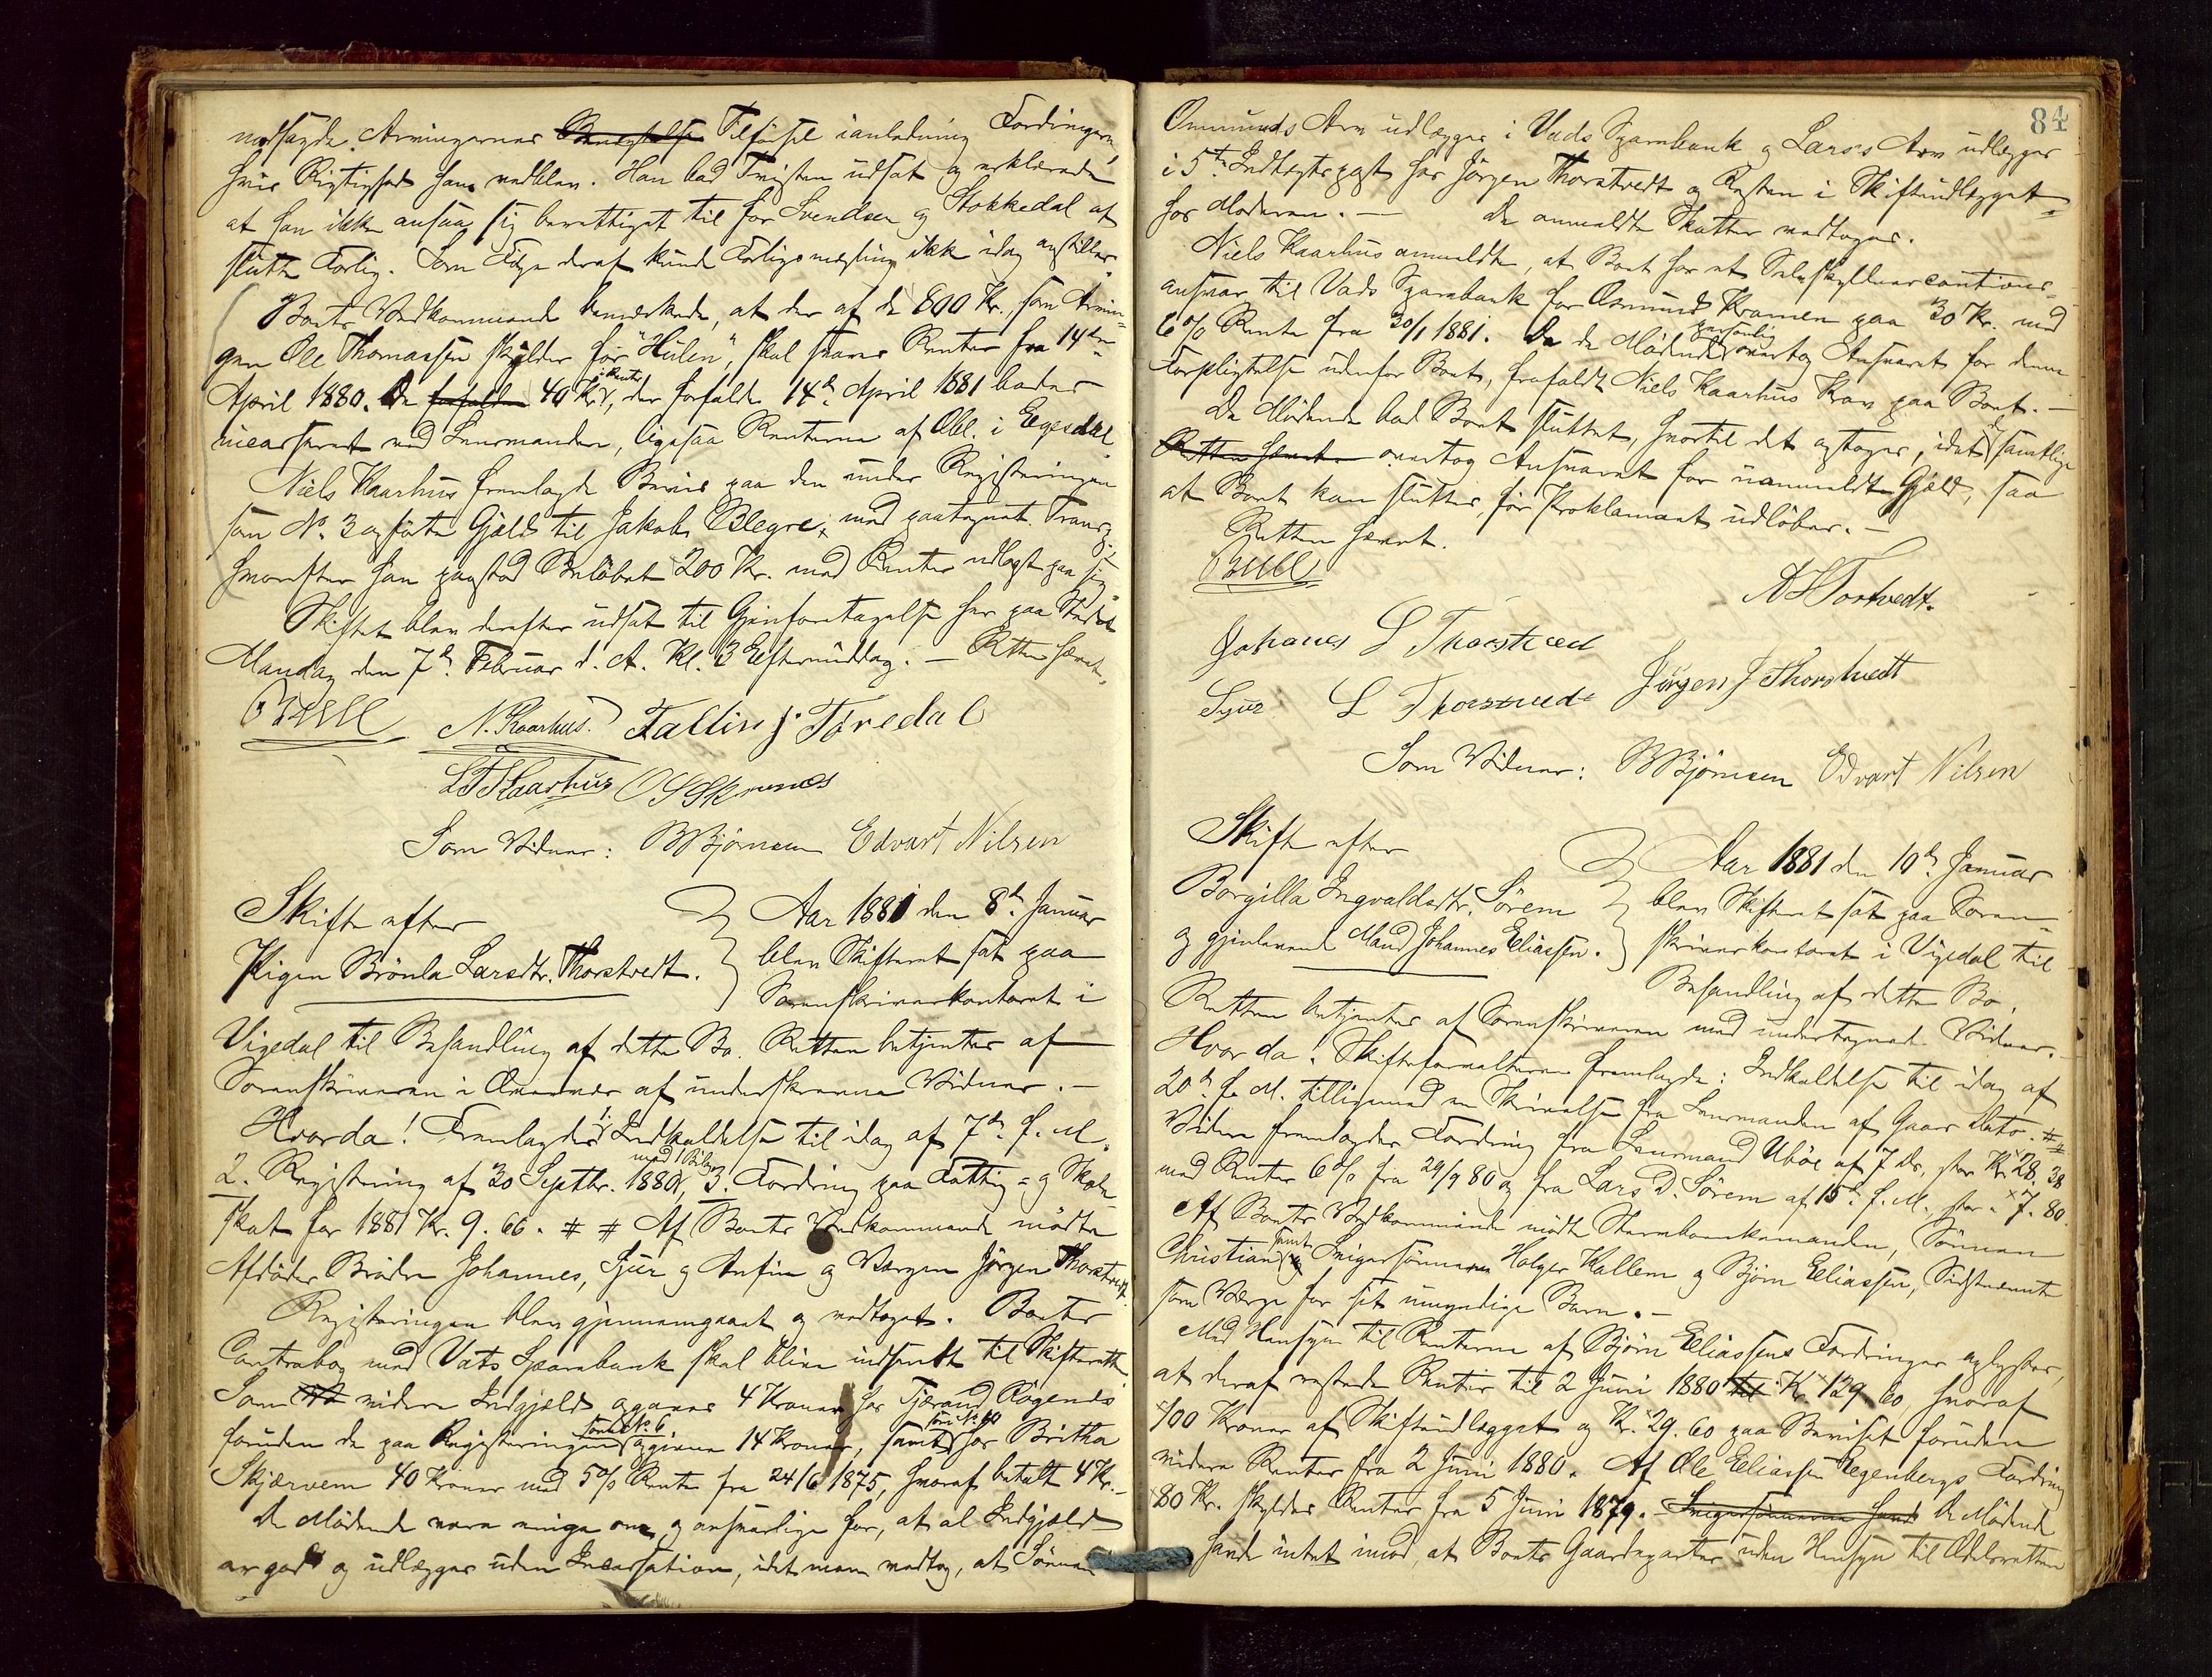 modsagde Arvingernes Tilførsel ianledning Fordringen,
hvis Rigtighed han vedblev. Han bad Tvisten udsat og erklærede
at han ikke ansaa sig berettiget til for Svendsen og Stokkedal at
slutte Forlig. Som Følge deraf kunde Forligsmægling ikke idag anstilles.
Boets Vedkommende bemærkede, at der af de 800 Kr. som Arvin-
gen Ole Thomassen skylder for "Hülen", skal svares Renter fra 14de
April 1880. De forfaldne 40 Kr. i Renter, der forfaldt 14de April 1881 bades
incasseret ved Lensmanden, ligesaa Renterne af Obl. i Egesdal
Niels Kaarhus fremlagde Bevis paa den under Registreringen
som No. 3 opførte Gjæld til Jakob Blegre, med paategnet Transp.
hvorefter han paastod Beløbet 200 Kr. med Renter udlagt paa sig
Skiftet blev derefter udsat til Gjenforetagelse her paa Stedet
Mandag den 7de Februar d. A. Kl. 3 Eftermiddag. — Retten hævet.
Bull N. Kaarhus. Tallin J. Töredal
L T Kaarhus O S Skrunes
Som Vidner: B Bjørnsen Edvart Nilsen
Skifte efter
Pigen Brönla Larsdtr. Thorstvedt.
Aar 1881 den 8de Januar
blev Skifteret sat paa
Sorenskriverkontoret i
Vigedal til Behandling af dette Bo. Retten betjentes af
Sorenskriveren i Overvær af underskrevne Vidner. —
Hvorda! Fremlagdes 1. Indkaldelse til idag af 7de f. M.
2. Registrering af 30 Septbr. 1880 med 1 Bilag, 3. Fordring paa Fattig- og Skole
skat for 1881 Kr. 9. 66. # # Af Boets Vedkommende mødte
Afdødes Brødre Johannes, Sjur og Anfin og Værgen Jörgen Thorstvedt.
Registreringen blev gjennemgaaet og vedtaget. Boets
Contrabog med Vats Sparebank skal blive indsendt til Skifteretten
Som videre Indgjæld opgaves 4 Kroner hos Tjerand Rögends
foruden de paa Registreringen som No 6 opgivne 14 Kroner, samt som No 10 hos Britha
Skjærvem 40 Kroner med 5% Rente fra 24/6 1875, hvoraf betalt 4 Kr. —
De Mødende vare enige om og ansvarlige for, at al Indgjæld
er god og udlægges uden Incassation, idet man vedtog, at Sønnen
84
Ommunds Arv udlægges i Vads Sparebank og Lars's Arv udlægges
i 5te Indtægtspost hos Jörgen Thorstvedt og Resten i Skifteudlægget
hos Moderen. — De anmeldte Skatter vedtoges.
Niels Kaarhus anmeldte, at Boet har et Selvskyldnercautions-
ansvar til Vads Sparebank for Osmund Kramen paa 30 Kr. med
6% Rente fra 30/1 1881. Da de Mødende personlig overtog Ansvaret for denne
Forpligtelse udenfor Boet, frafaldt Niels Kaarhus Krav paa Boet. —
De Mødende bad Boet sluttet, hvortil det optoges, idet samtlige
Retten hævet overtog Ansvaret for uanmeldt Gjæld, saa
at Boet kan sluttes, før Proklamaet udløber. —
Retten hævet.
Bull
A L Torstvedt.
Johanes L Thorstved
Sjur L Thorstvedt Jörgen J Thorstvedt
Som Vidner: B Bjørnsen Edvart Nilsen
Skifte efter
Borgilla Ingvaldsdtr. Sörem
og gjenlevende Mand Johannes Eliassen.
Aar 1881 den 10de Januar
blev Skifteret sat paa Soren-
skriverkontoret i Vigedal til
Behandling af dette Bo.
Retten betjentes af Sorenskriveren med undertegnede Vidner. —
Hvor da! Skifteforvalteren fremlagde: Indkaldelse til idag af
20de f. M. tilligemed en Skrivelse fra Lensmanden af Gaars Dato. # #
Videre fremlagdes Fordring fra Lensmand Ubøe af 7 ds, stor Kr. 28. 38
med Renter 6% fra 29/9 80 og fra Lars D. Sörem af 15de f. M., stor " 7. 80.
Af Boets Vedkommende mødte Stervboenkemanden, Sønnen
Christian samt Svigersønnerne Holger Hallem og Björn Eliassen, Sidstnævnte
som Værge for sit umyndige Barn. —
Med Hensyn til Renterne af Björn Eliassens Fordringer oplystes,
at deraf restede Renter til 2 Juni 1880 Kr. 129. 60, hvoraf
100 Kroner af Skifteudlægget og Kr. 29. 60 paa Beviset foruden
videre Renter fra 2 Juni 1880. Af Ole Eliassen Egenbergs Fordring
80 Kr. skyldes Renter fra 5 Juni 1879. Svigersønnerne havde De Mødende
havde intet imod, at Boets Gaardparter uden Hensyn til Odelsretten